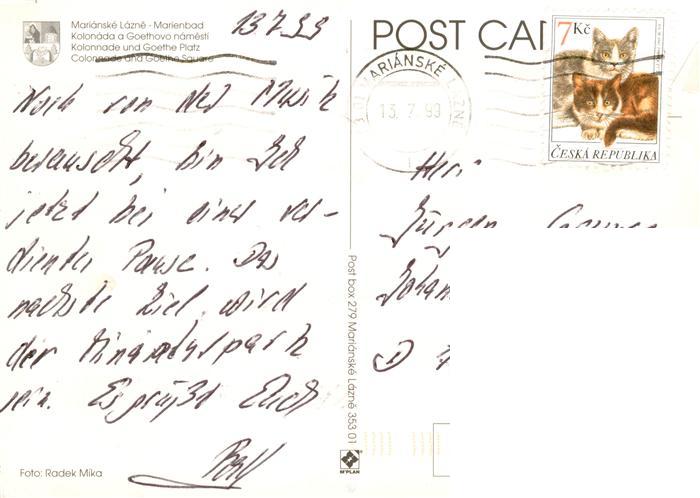 Mariánské Lázně - Marienbad
Kolonáda a Goethovo náměstí
Kolonnade und Goethe Platz
Colonnade and Goethe Square
13.7.99
Noch von der Musik
berauscht, bin ich
jetzt bei einer ver-
dienten Pause. Das
nächste Ziel wird
der Miniaturpark
sein. Es grüßt Euch
Foto: Radek Mika
Post box 279 Mariánské Lázně 353 01
M*PLAN
POST CAR
MARIÁNSKÉ LÁZNĚ
13.7.99
1
7Kč
ČESKÁ REPUBLIKA
Herr
Jürgen
Johan
D